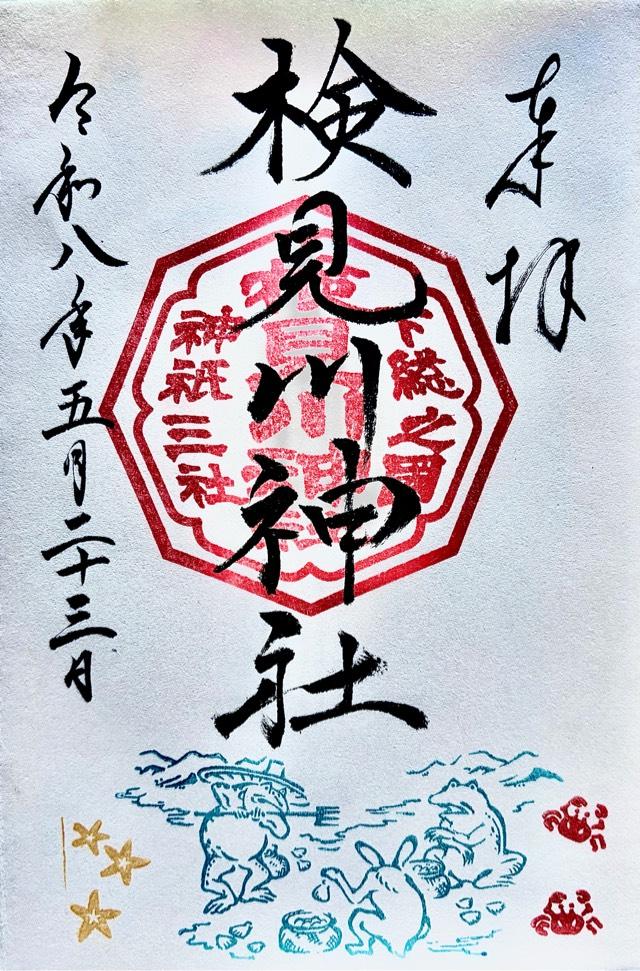 奉拝
検見川神社
下総之国
神祇三社
令和八年五月二十三日